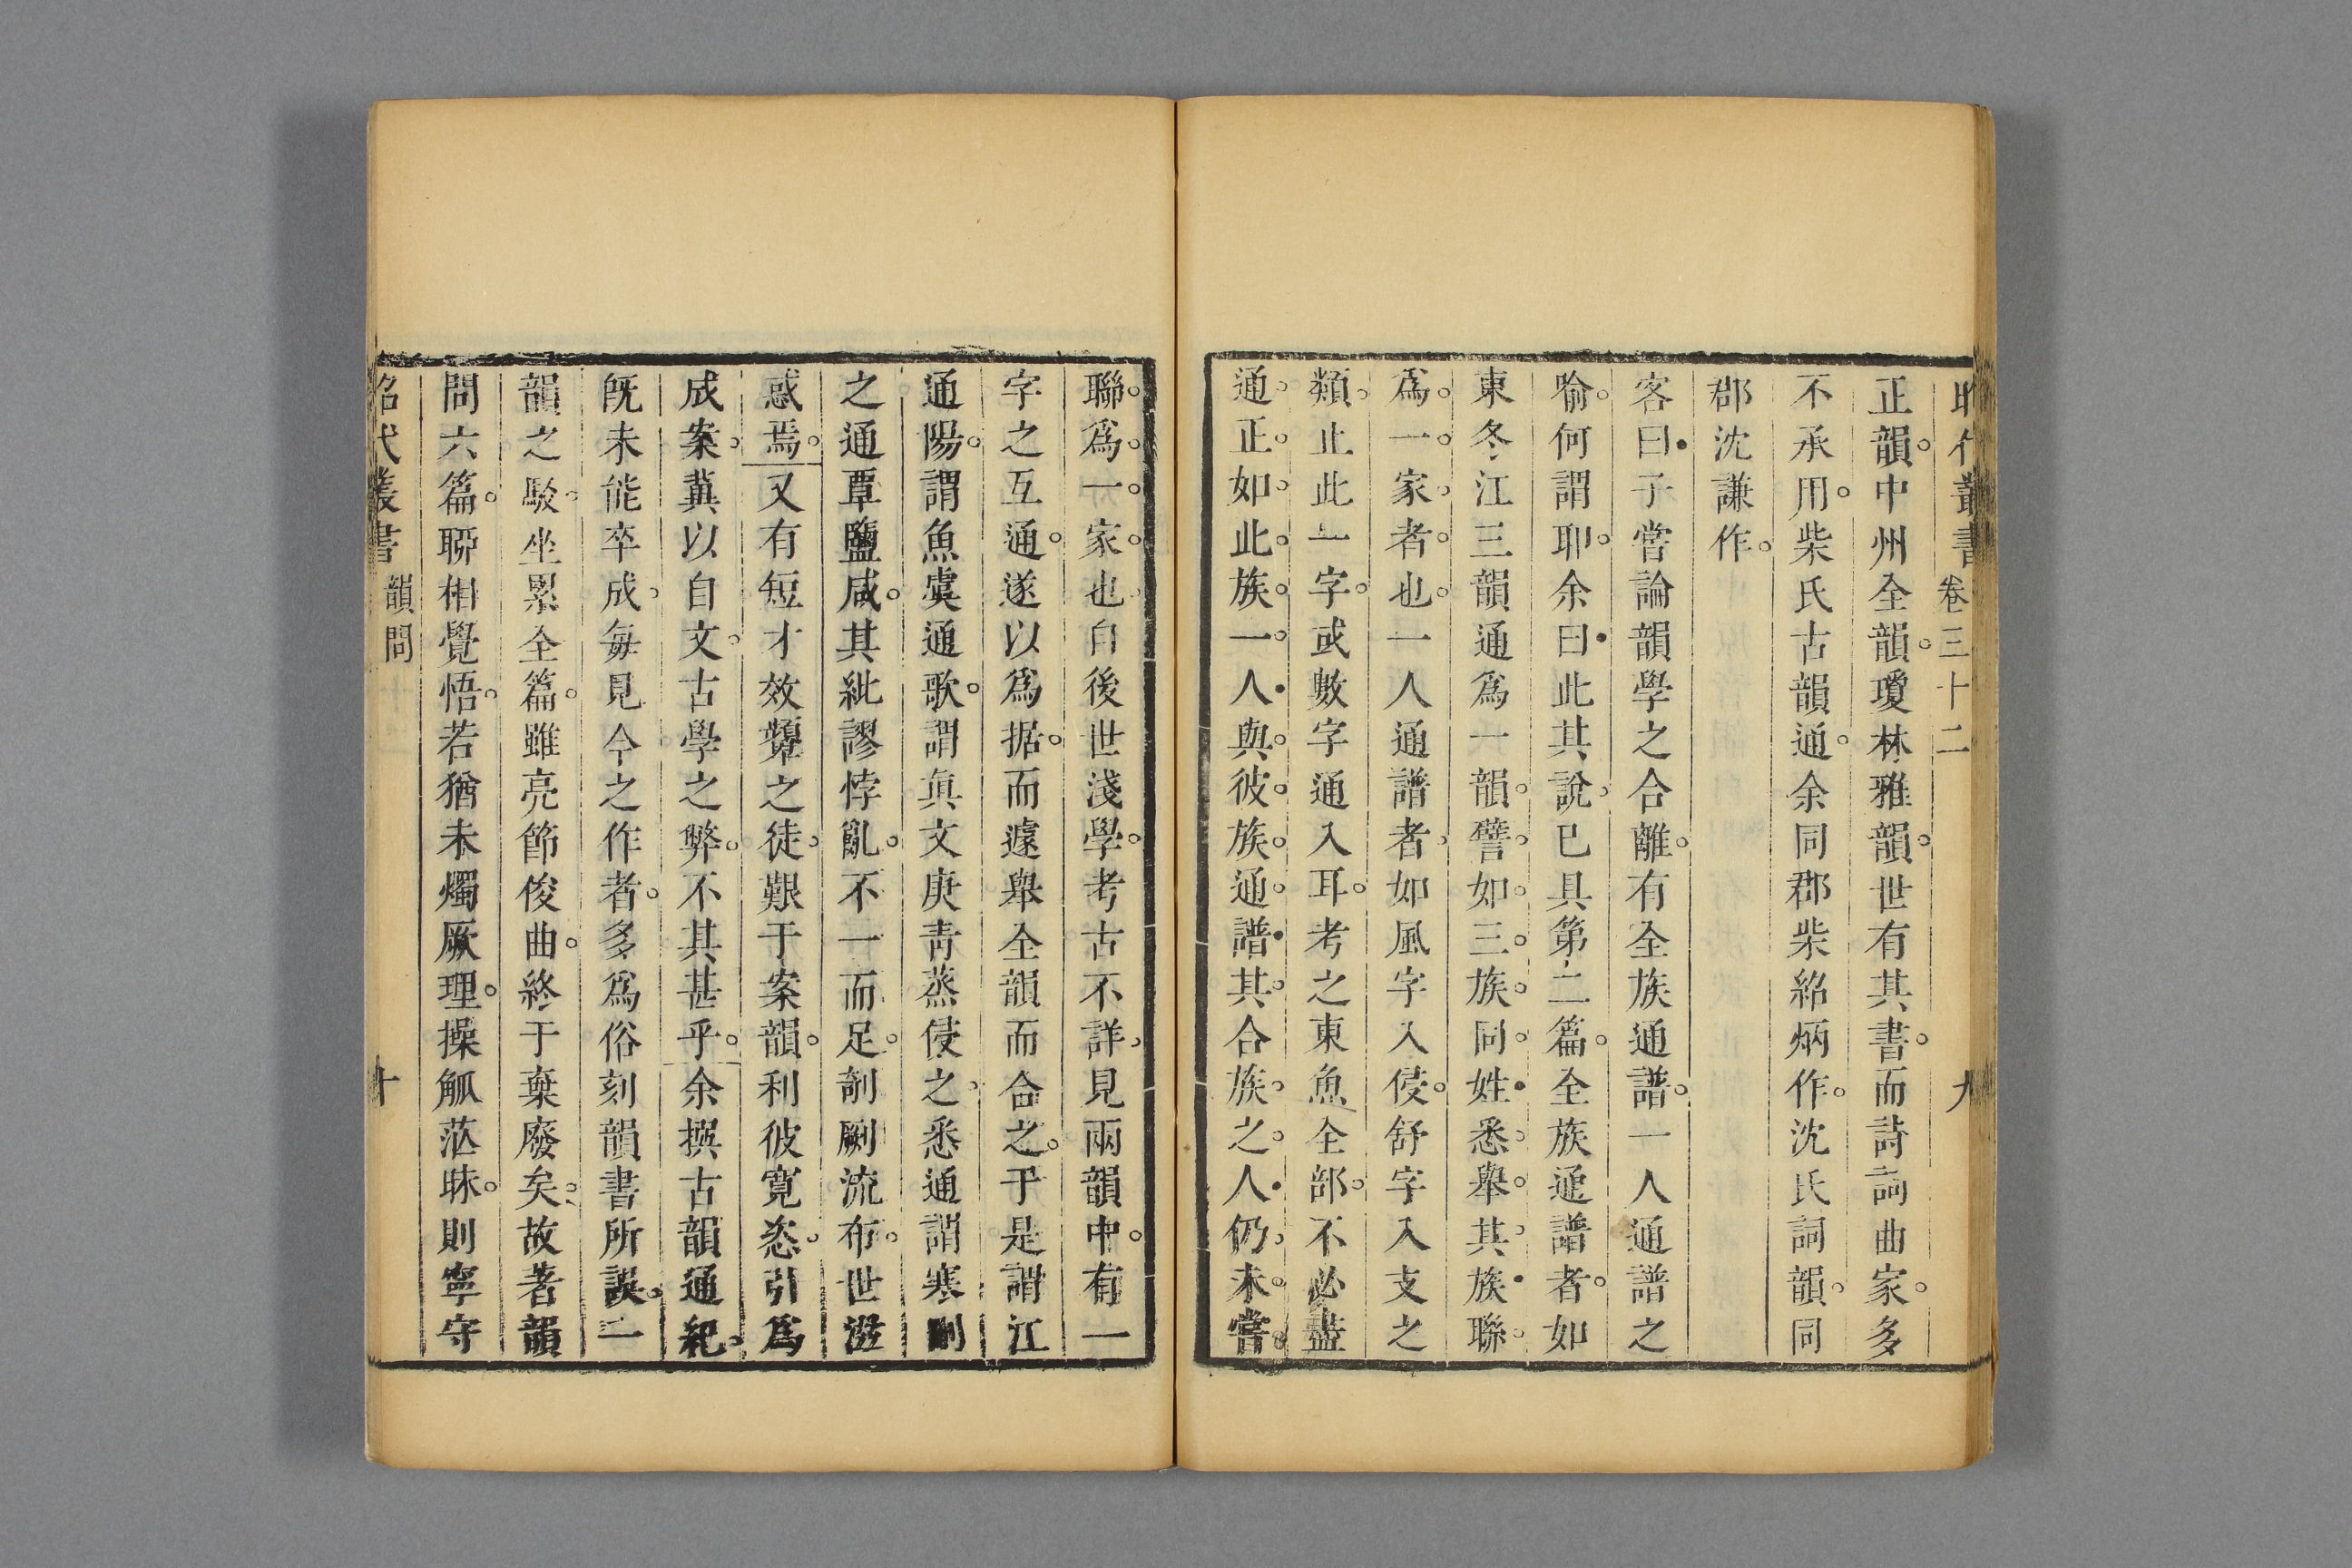 昭代叢書 卷三十二 九
正韻中州全韻瓊林雅韻世有其書而詩詞曲家多
不承用柴氏古韻通余同郡柴紹炳作沈氏詞韻同
郡沈謙作
客曰子嘗論韻學之合離有全族通譜一人通譜之
喻何謂耶余曰此其說已具第二篇全族通譜者如
東冬江三韻通爲一韻譬如三族同姓悉舉其族聯
爲一家者也一人通譜者如風字入侵舒字入支之
類止此一字或數字通入耳考之東魚全部不必盡
通正如此族一人與彼族通譜其合族之人仍未嘗
聯爲一家也自後世淺學考古不詳見兩韻中有一
字之互通遂以爲据而遽舉全韻而合之于是謂江
通陽謂魚虞通歌謂眞文庚靑蒸侵之悉通謂寒刪
之通覃鹽咸其紕謬悖亂不一而足剞劂流布世滋
惑焉又有短才效顰之徒艱于案韻利彼寬恣引爲
成案冀以自文古學之弊不其甚乎余撰古韻通紀
旣未能卒成每見今之作者多爲俗刻韻書所誤一
韻之駁坐累全篇雖亮節俊曲終于棄廢矣故著韻
問六篇聊相覺悟若猶未燭厥理操觚茫昧則寧守
昭代叢書 韻問 十